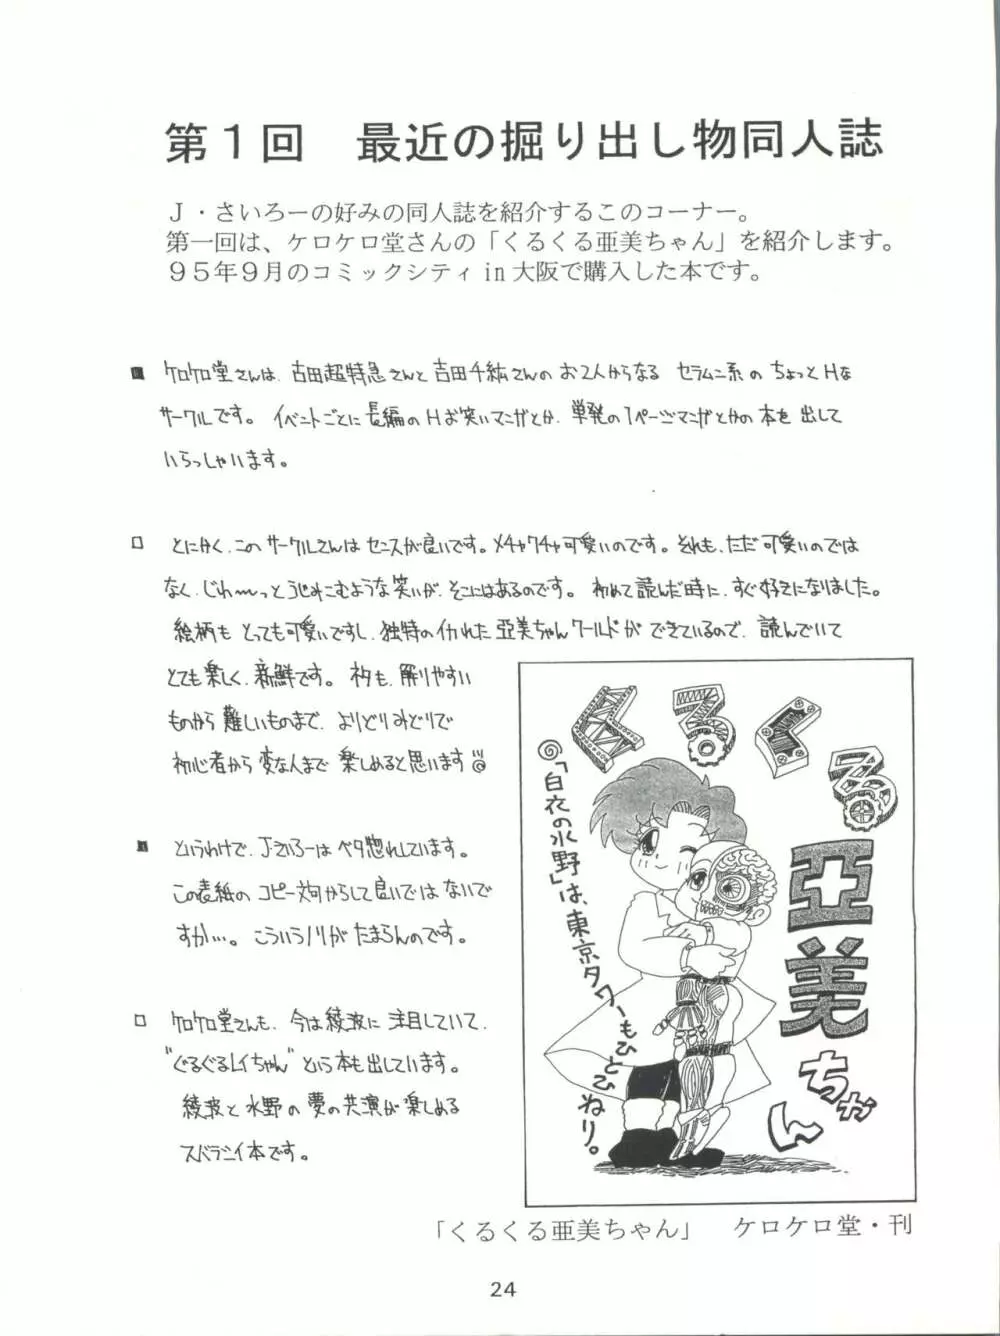 第１回　最近の掘り出し物同人誌
Ｊ・さいろーの好みの同人誌を紹介するこのコーナー。
第一回は、ケロケロ堂さんの「くるくる亜美ちゃん」を紹介します。
９５年９月のコミックシティ in 大阪で購入した本です。
■ ケロケロ堂さんは、古田超特急さんと吉田千紘さんのお2人からなる セラムン系のちょっとHな
サークルです。イベントごとに長編のHお笑いマンガとか、単発の1ページマンガとかの本を出して
いらっしゃいます。
□ とにかく、このサークルさんはセンスが良いです。メチャクチャ可愛いのです。それも、ただ可愛いのでは
なく、じわ〜っとうじめこむような笑いが、そこにはあるのです。初めて読んだ時に、すぐ好きになりました。
絵柄もとっても可愛いですし、独特のイカれた亜美ちゃんワールドができているので、読んでいて
とても楽しく、新鮮です。ネタも、解りやすい
ものから難しいものまで、よりどりみどりで
初心者から変な人まで楽しめると思います
■ というわけで、J・さいろーはベタ惚れしています。
この表紙のコピー文句からして良いではないで
すか…。こういうノリがたまらんのです。
□ ケロケロ堂さんも、今は綾波に注目していて、
"ぐるぐるレイちゃん"という本も出しています。
綾波と水野の夢の共演が楽しめる
スバラシイ本です。
くるくる
亞美ちゃん
「白衣の水野」は、東京タワーもひとひねり。
「くるくる亜美ちゃん」　ケロケロ堂・刊
24